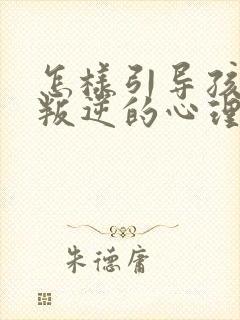 怎样引导孩
叛逆的心理
朱德庸